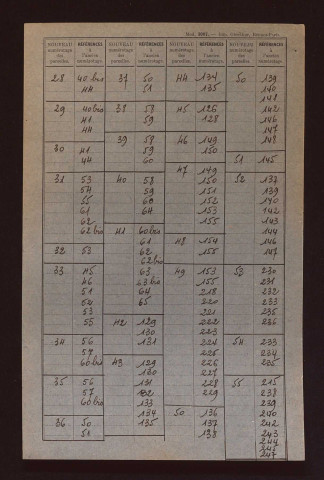 NOUVEAU numérotage des parcelles.
RÉFÉRENCES à l'ancien numérotage
NOUVEAU numérotage des parcelles.
RÉFÉRENCES à l'ancien numérotage
NOUVEAU numérotage des parcelles.
RÉFÉRENCES à l'ancien numérotage
NOUVEAU numérotage des parcelles.
RÉFÉRENCES à l'ancien numérotage
28 40 bis
44
29 40 bis
41
44
30 41
44
31 53
54
55
61
62
62 bis
32 53
33 45
46
51
54
53
55
34 56
57
60 bis
35 56
57
60 bis
36 50
51
37 50
51
38 58
59
39 58
59
60
40 58
59
60
62
64
41 60 bis
61
62
62 bis
63
63 bis
64
65
42 129
130
131
43 129
130
131
132
133
134
135
44 134
135
45 126
128
46 149
150
47 149
150
151
152
153
155
48 154
155
49 153
155
218
220
221
222
223
224
225
226
227
228
229
50 136
137
138
50 139
140
148
142
146
147
148
51 145
52 137
139
140
142
143
144
146
147
53 230
231
232
233
235
236
54 233
234
235
55 215
238
239
240
242
243
244
245
247